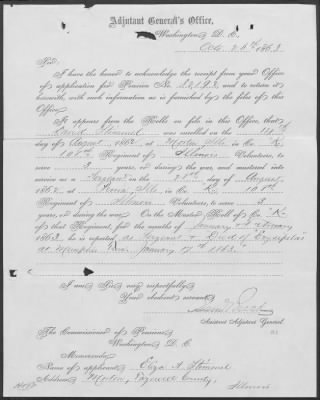 Adjutant General's Office,
Washington D. C.
Octo. 26th 1863.
Sir:
I have the honor to acknowledge the receipt from your Office
of application for Pension No. and to return it
herewith, with such information as is furnished by the files of this
Office.
It appears from the Rolls on file in this Office, that
David was enrolled on the 14th
day of August 1862, at Morton Ills. in Co. K,
108th Regiment of Illinois Volunteers, to
serve 3 years, or during the war, and mustered into
service as a Sergeant on the 28th day of August
1862, at Peoria Ills. in Co. K. 108th
Regiment of Illinois Volunteers, to serve 3
years, or during the war. On the Muster Roll of Co. "K"
of that Regiment, for the months of January & February
1863, he is reported as Sergeant & Died of Erysipelas
at Memphis Tenn January 17th 1863.
I am Sir, very respectfully
Your obedient servant,
Assistant Adjutant General.
The Commissioner of Pensions
Washington, D. C.
Memoranda:
Name of applicant, Eliza A.
Address Morton, Tazewell County,
Illinois